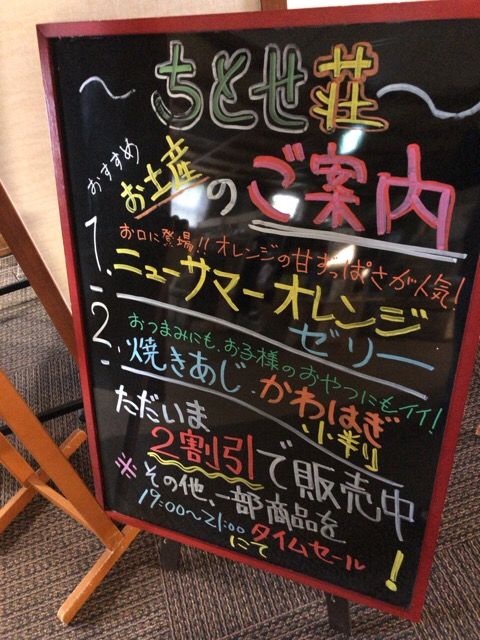 〜ちとせ荘〜
おすすめ
お土産のご案内
お口に登場!!オレンジの甘ずっぱさが人気!
1.ニューサマーオレンジ
ゼリー
おつまみにも、お子様のおやつにもイイ!
2.焼きあじ.かわはぎ
小判』
ただいま
2割引で販売中
※その他、一部商品を
19:00〜21:00タイムセール
にて!